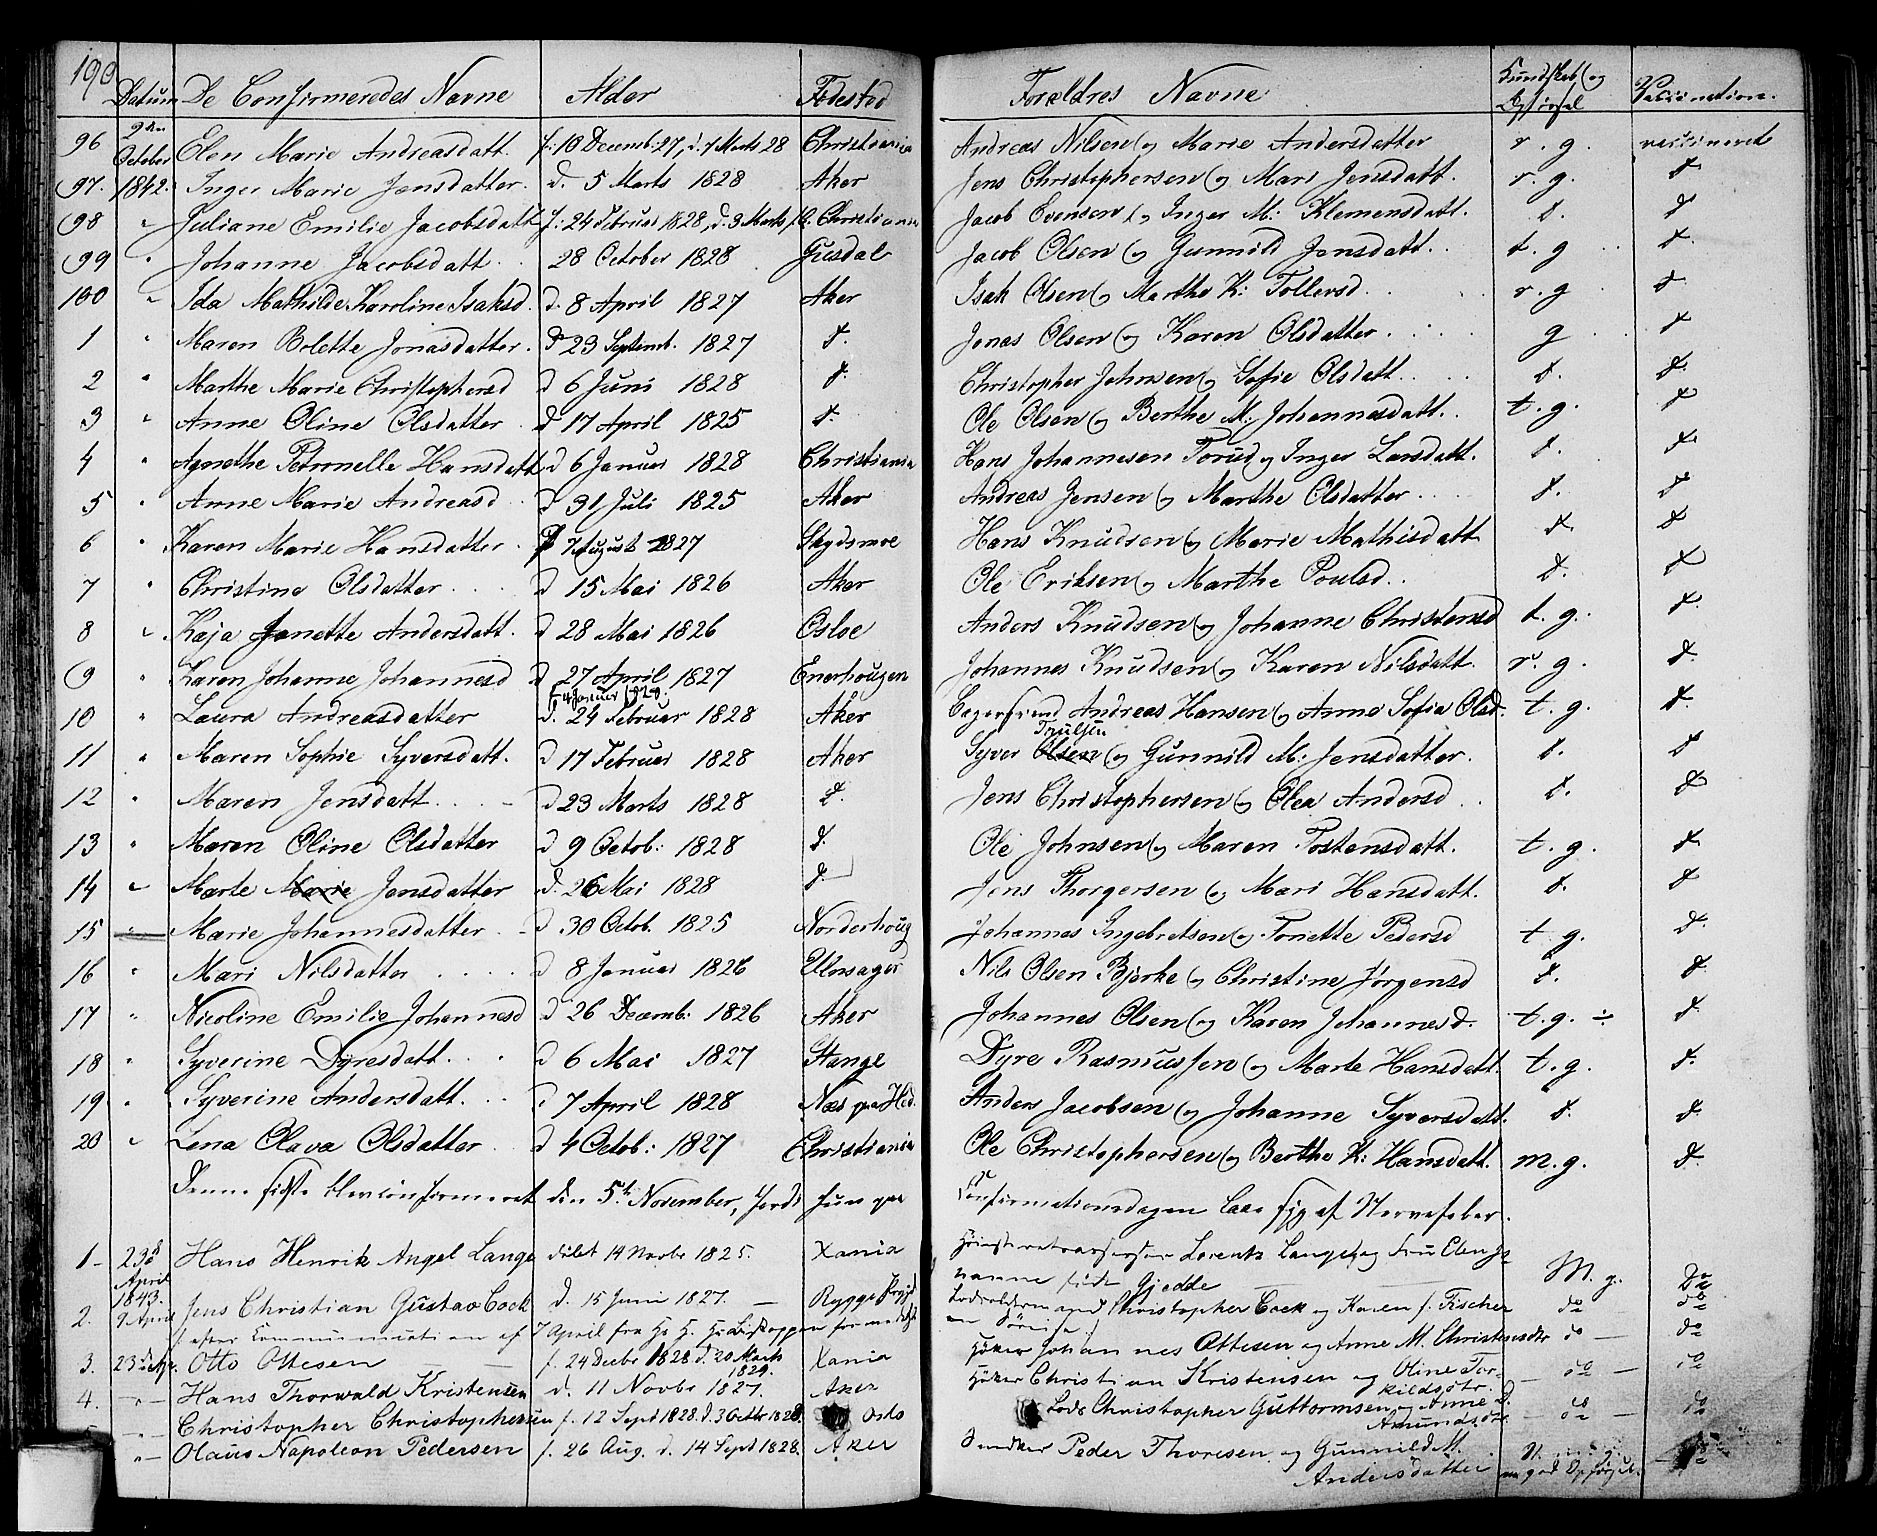 190
Datum De Confirmeredes Navne Alder Fødested Forældres Navne Kundskab og Opførsel Vaccination.
96 9de October Elen Marie Andreasdatt. f. 10 Decemb: 27, d. 7 Marts 28 Christiania Andreas Nilsen og Marie Andersdatter r. g. vaccineret
97. 1842. Inger Marie Jensdatter. d. 5 Marts 1828 Aker Jens Christophersen og Mari Jensdatt. r. g. d
98 " Juliane Emilie Jacobsdatt f. 24 Februar 1828, d. 3 Marts Christiania Jacob Evensen og Inger M: Klemensdatt. d. d
99 " Johanne Jacobsdatt 28 October 1828 Gusdal Jacob Olsen og Gunnild Jonsdatt. t. g d.
100 " Ida Mathilde Karoline Isaksd. d. 8 April 1827 Aker Isak Olsen og Marthe K: Tollevsd. r. g d
1 " Maren Bolette Jonasdatter. d 23 Septemb. 1827 d. Jonas Olsen og Karen Olsdatter g d
2 " Marthe Marie Christophersd d 6 Juni 1828 d. Christopher Johnsen og Sofie Olsdatt. d. d.
3 " Anne Oline Olsdatter d 17 April 1825 d. Ole Olsen og Berthe M: Johannesdatt. t. g. d
4 " Agnethe Petronelle Hansdatt d 6 Januar 1828 Christiania Hans Johannesen Torud og Inger Larsdatt. d. d.
5 " Anne Marie Andreasd d 31 Juli 1825 Aker Andreas Jensen og Marthe Olsdatter d. d
6 " Karen Marie Hansdatter. 7 August 1827 Skydsmoe Hans Knudsen og Marie Mathisdatt d. d
7 " Christine Olsdatter d 15 Mai 1826 Aker Ole Eriksen og Marthe Poulsd. d. d
8 " Kaja Janette Andersdatt. d 28 Mai 1826 Osloe Anders Knudsen og Johanne Christensd t. g. d.
9 " Karen Johanne Johannesd d 27 April 1827 Enerhougen Johannes Knudsen og Karen Nilsdatt. r. g. d.
10 " Laura Andreasdatter d. 24 Februar 1828 Aker Andreas Hansen og Anne Sofia Olsd. t. g. d.
11 " Maren Sophie Syversdatt. d 17 Februar 1828 Aker Syver Olsen Trulsen og Gunnild M: Jensdatter. d. d
12 " Maren Jensdatt. d 23 Marts 1828 d. Jens Christophersen og Olea Andersd d. d
13 " Maren Oline Olsdatter d 9 Octob: 1828 d. Ole Johnsen og Maren Tostensdatt. t. g. d.
14 " Marte Marie Jensdatter d. 26 Mai 1828 d. Jens Thorgersen og Mari Hansdatt. d. d
15 " Marie Johannesdatter d. 30 Octob. 1825 Norderhoug Johannes Ingebretsen og Toriette Pedersd t. g. d.
16 " Mari Nilsdatter d 8 Januar 1826 Ulensager Nils Olsen Bjerke og Christine Jørgensd d. d.
17 " Nicoline Emilie Johannesd d 26 Decemb: 1826 Aker Johannes Olsen og Karen Johannesd. t. g. ÷ d.
18 " Syverine Dyresdatt. d 6 Mai 1827 Stange Dyre Rasmussen og Marte Hansdatt. t. g. d.
19 " Syverine Andersdatt. d 7 April 1828 Næs paa Hed. Anders Jacobsen og Johanne Syversdatt. d. d.
20 " Lena Olava Olsdatter d 4 Octob: 1827 Christiania Ole Christophersen og Berthe K: Hansdatt. m. g. d.
Denne sidste blev confirmeret den 5te November, fordi hun paa Confirmationsdagen laae syg af Nervefeber.
1. 23de April 1843. Hans Henrik Angel Lange født 14 Novbr 1825. Xania Lorentz Lange og Fru Elen Johanne født Gjedde M. g. do
2. Jens Christian Gustav Cock d. 15 Juni 1827. Rygge Christopher Cock og Karen f. Fischer do do
3. 23de Apr. Otto Ottesen f. 24 Decbr 1828 d. 20 Marts 1829. Xania Høker Johannes Ottesen og Anne M. Christensdtr do do
4. " Hans Thorwald Kristensen d. 11 Novbr 1827. Aker Høker Christian Kristensen og Oline Torkildsdtr. do do
" Christopher Christophersen f. 12 Sept 1828. d. 3 Octbr 1828. Oslo Lods Christopher Guttormsen og Anne D. Amundsdtr do do
" Olaus Napoleon Pedersen f. 26 Aug. d. 14 Sept 1828. Aker Snedker Peder Thoresen og Gunnild M. Andersdatter god Opførsel.